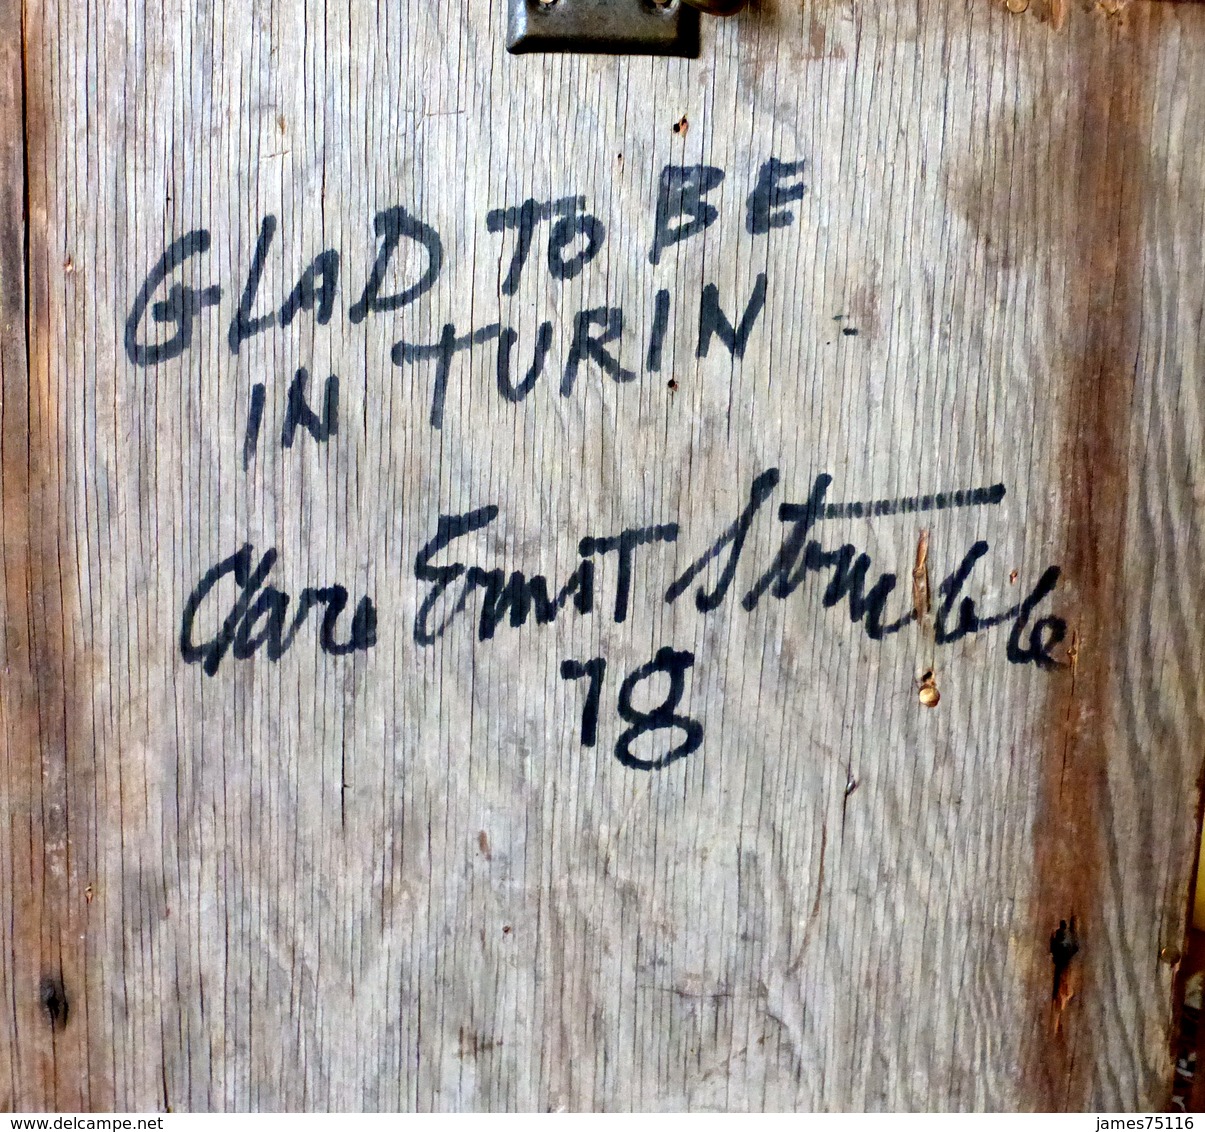 GLAD TO BE
IN TURIN -
Clare Ernst
78
www.delcampe.net
james75116